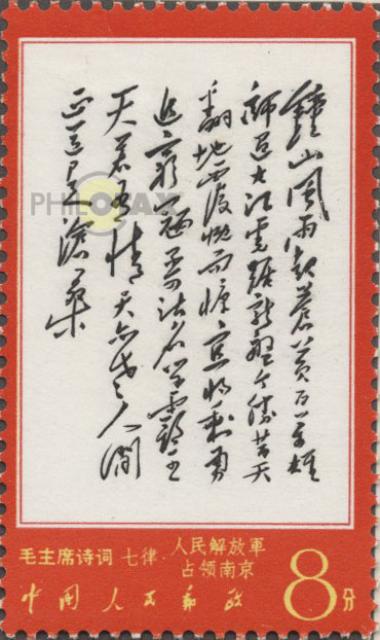 鍾山風雨起蒼黃百万雄
師過大江虎踞龍盤今勝昔天
翻地覆慨而慷宜將剩勇
追窮寇不可沽名學霸王
天若有情天亦老人間
正道是滄桑
毛主席诗词 七律·人民解放軍
占领南京
中国人民郵政
8分